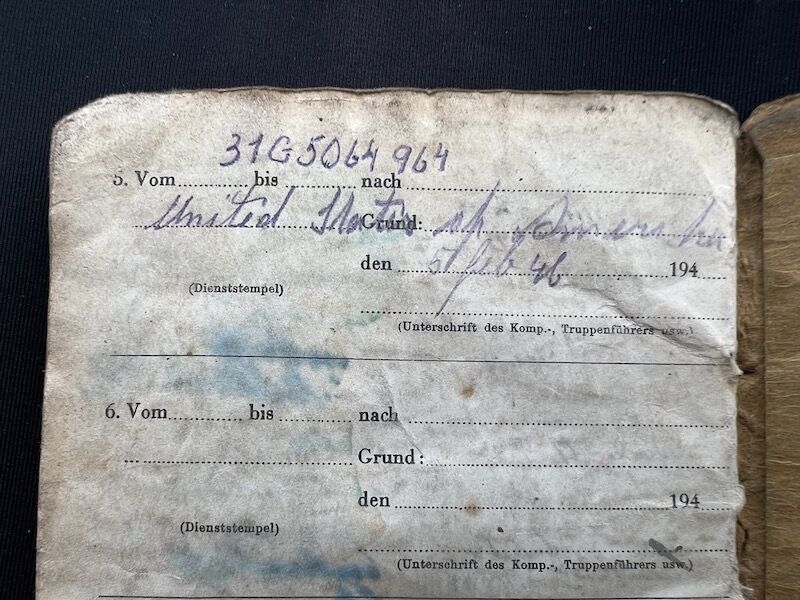 31G5064964
5. Vom bis nach
United States of America
Grund:
den 5 Feb 46 194
(Dienststempel)
(Unterschrift des Komp.-, Truppenführers usw.)
6. Vom bis nach
Grund:
den 194
(Dienststempel)
(Unterschrift des Komp.-, Truppenführers usw.)